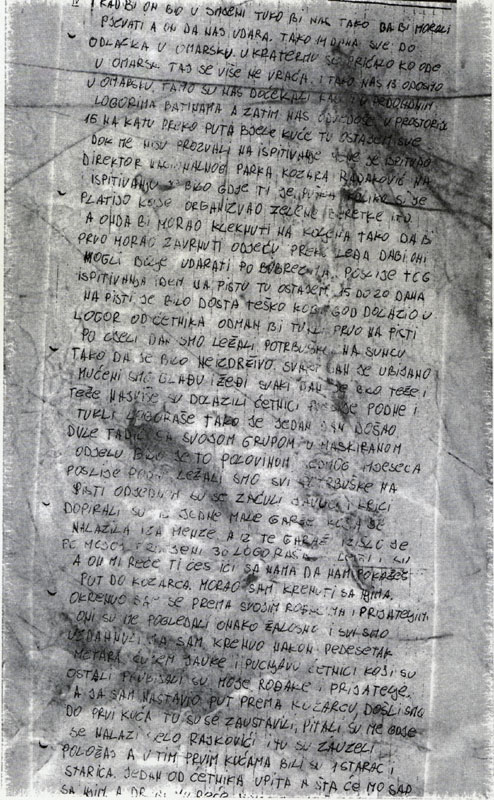 I KAD BI ON BIO U SMJENI TUKO BI NAS TAKO DA BI MORALI
PJEVATI A ON DA NAS UDARA. TAKO DANA SVE DO
ODLASKA U OMARSKU. U KRATERMU SE PRIČALO KO ODE
U OMARSK TAJ SE VIŠE NE VRAĆA. I TAKO NAS 13 ODOSMO
U OMARSKU. TAMO SU NAS DOČEKALI KAO I U
LOGORIMA BATINAMA A ZATIM NAS U PROSTORIJE
15 NA KATU PREKO PUTA BIJELE KUĆE TU OSTAJEM SVE
DOK ME NISU PROZVALI NA ISPITIVANJE ISPITIVO
DIREKTOR NACIONALNOG PARKA KOZARA RADAKOVIĆ NA
ISPITIVANJU BILO GDJE TI JE PUŠKA KOLIKO SI JE
PLATIJO KO JE ORGANIZVAO ZELENE BERETKE ITD.
A ONDA BI MORAO KLEKNUTI NA KOLJENA TAKO DA BI
PRVO MORAO ZAVRNUTI ODJEĆU PREKO LEĐA DA BI ONI
MOGLI BOLJE UDARATI PO BUBREZIMA. POSLIJE TOG
ISPITIVANJA IDEM NA PISTU TU OSTAJEM 15 DO 20 DANA
NA PISTI JE BILO DOSTA TEŠKO KO BI GOD DOLAZIO U
LOGOR OD ČETNIKA ODMAH BI TUKLI PRVO NA PISTI
PO CIJELI DAN SMO LEŽALI POTRBUŠKE NA SUNCU
TAKO DA JE BILO NEIZDRŽIVO SVAKI DAN SE UBIJANO
MUČENI SMO GLAĐU I ŽEĐI SVAKI DAN JE BILO TEŽE I
TEŽE NAJVIŠE SU DOLAZILI ČETNICI POSLIJE PODNE I
TUKLI LOGORAŠE TAKO JE JEDAN DAN DOŠAO
DULE TADIĆ SA SVOJOM GRUPOM U MASKIRANOM
ODJELU BILO JE TO POLOVINOM SEDMOG MJESECA
POSLIJE PODNE LEŽALI SMO SVI POTRBUŠKE NA
PISTI ODJEDNOM SU SE ZAČULI JAUCI I KRICI
DOPIRALI SU IZ JEDNE MALE GARAŽE KOJA SE
NALAZILA IZA MENZE A IZ TE GARAŽE IZIŠLO JE
PO MOJOJ 30 LOGORAŠA
A OD MI REČE TI ĆEŠ IĆI SA NAMA DA NAM POKAŽEŠ
PUT DO KOZARCA. MORAO SAM KRENUTI SA NJIMA.
OKRENUO SAM SE PREMA SVOJIM ROĐACIMA I PRIJATELJIMA
ONI SU ME POGLEDALI ONAKO ŽALOSNO I SVI SMO
UZDAHNULI JA SAM KRENUO NAKON PEDESETAK
METARA ČUJEM JAUKE I PUCNJAVU ČETNICI KOJI SU
OSTALI POUBIJALI SU MOJE ROĐAKE I PRIJATELJE.
A JA SAM NASTAVIO PUT PREMA KOZARCU, DOŠLI SMO
DO PRVI KUĆA TU SU SE ZAUSTAVILI, PITALI SU ME GDJE
SE NALAZI SELO RAJKOVIĆI I TU SU ZAUZELI
POLOŽAJ A U TIM PRVIM KUĆAMA BILI SU I STARAC I
STARICA. JEDAN OD ČETNIKA UPITA A ŠTA ĆEMO SAD
SA NJIM A